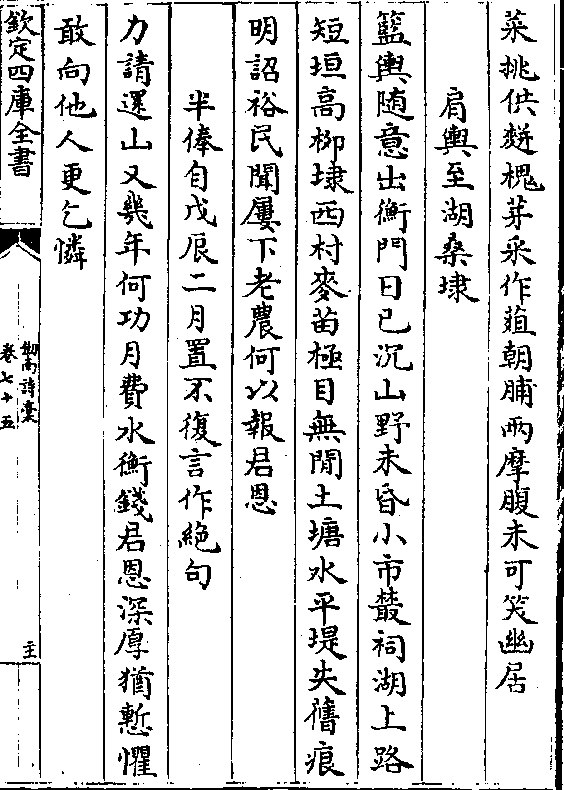 菜挑供麪槐芽采作葅朝脯兩摩腹未可笑幽居
肩輿至湖桑埭
籃輿随意出衡門日已沉山野未昏小市叢祠湖上路
短垣高栁埭西村麥苗極目無閒土塘水平堤失舊痕
明詔裕民聞屢下老農何以報君恩
半俸自戊辰二月置不復言作絶句
力請還山又幾年何功月費水衡錢君恩深厚猶慙懼
敢向他人更乞憐
欽定四庫全書
劍南詩藁
卷七十五